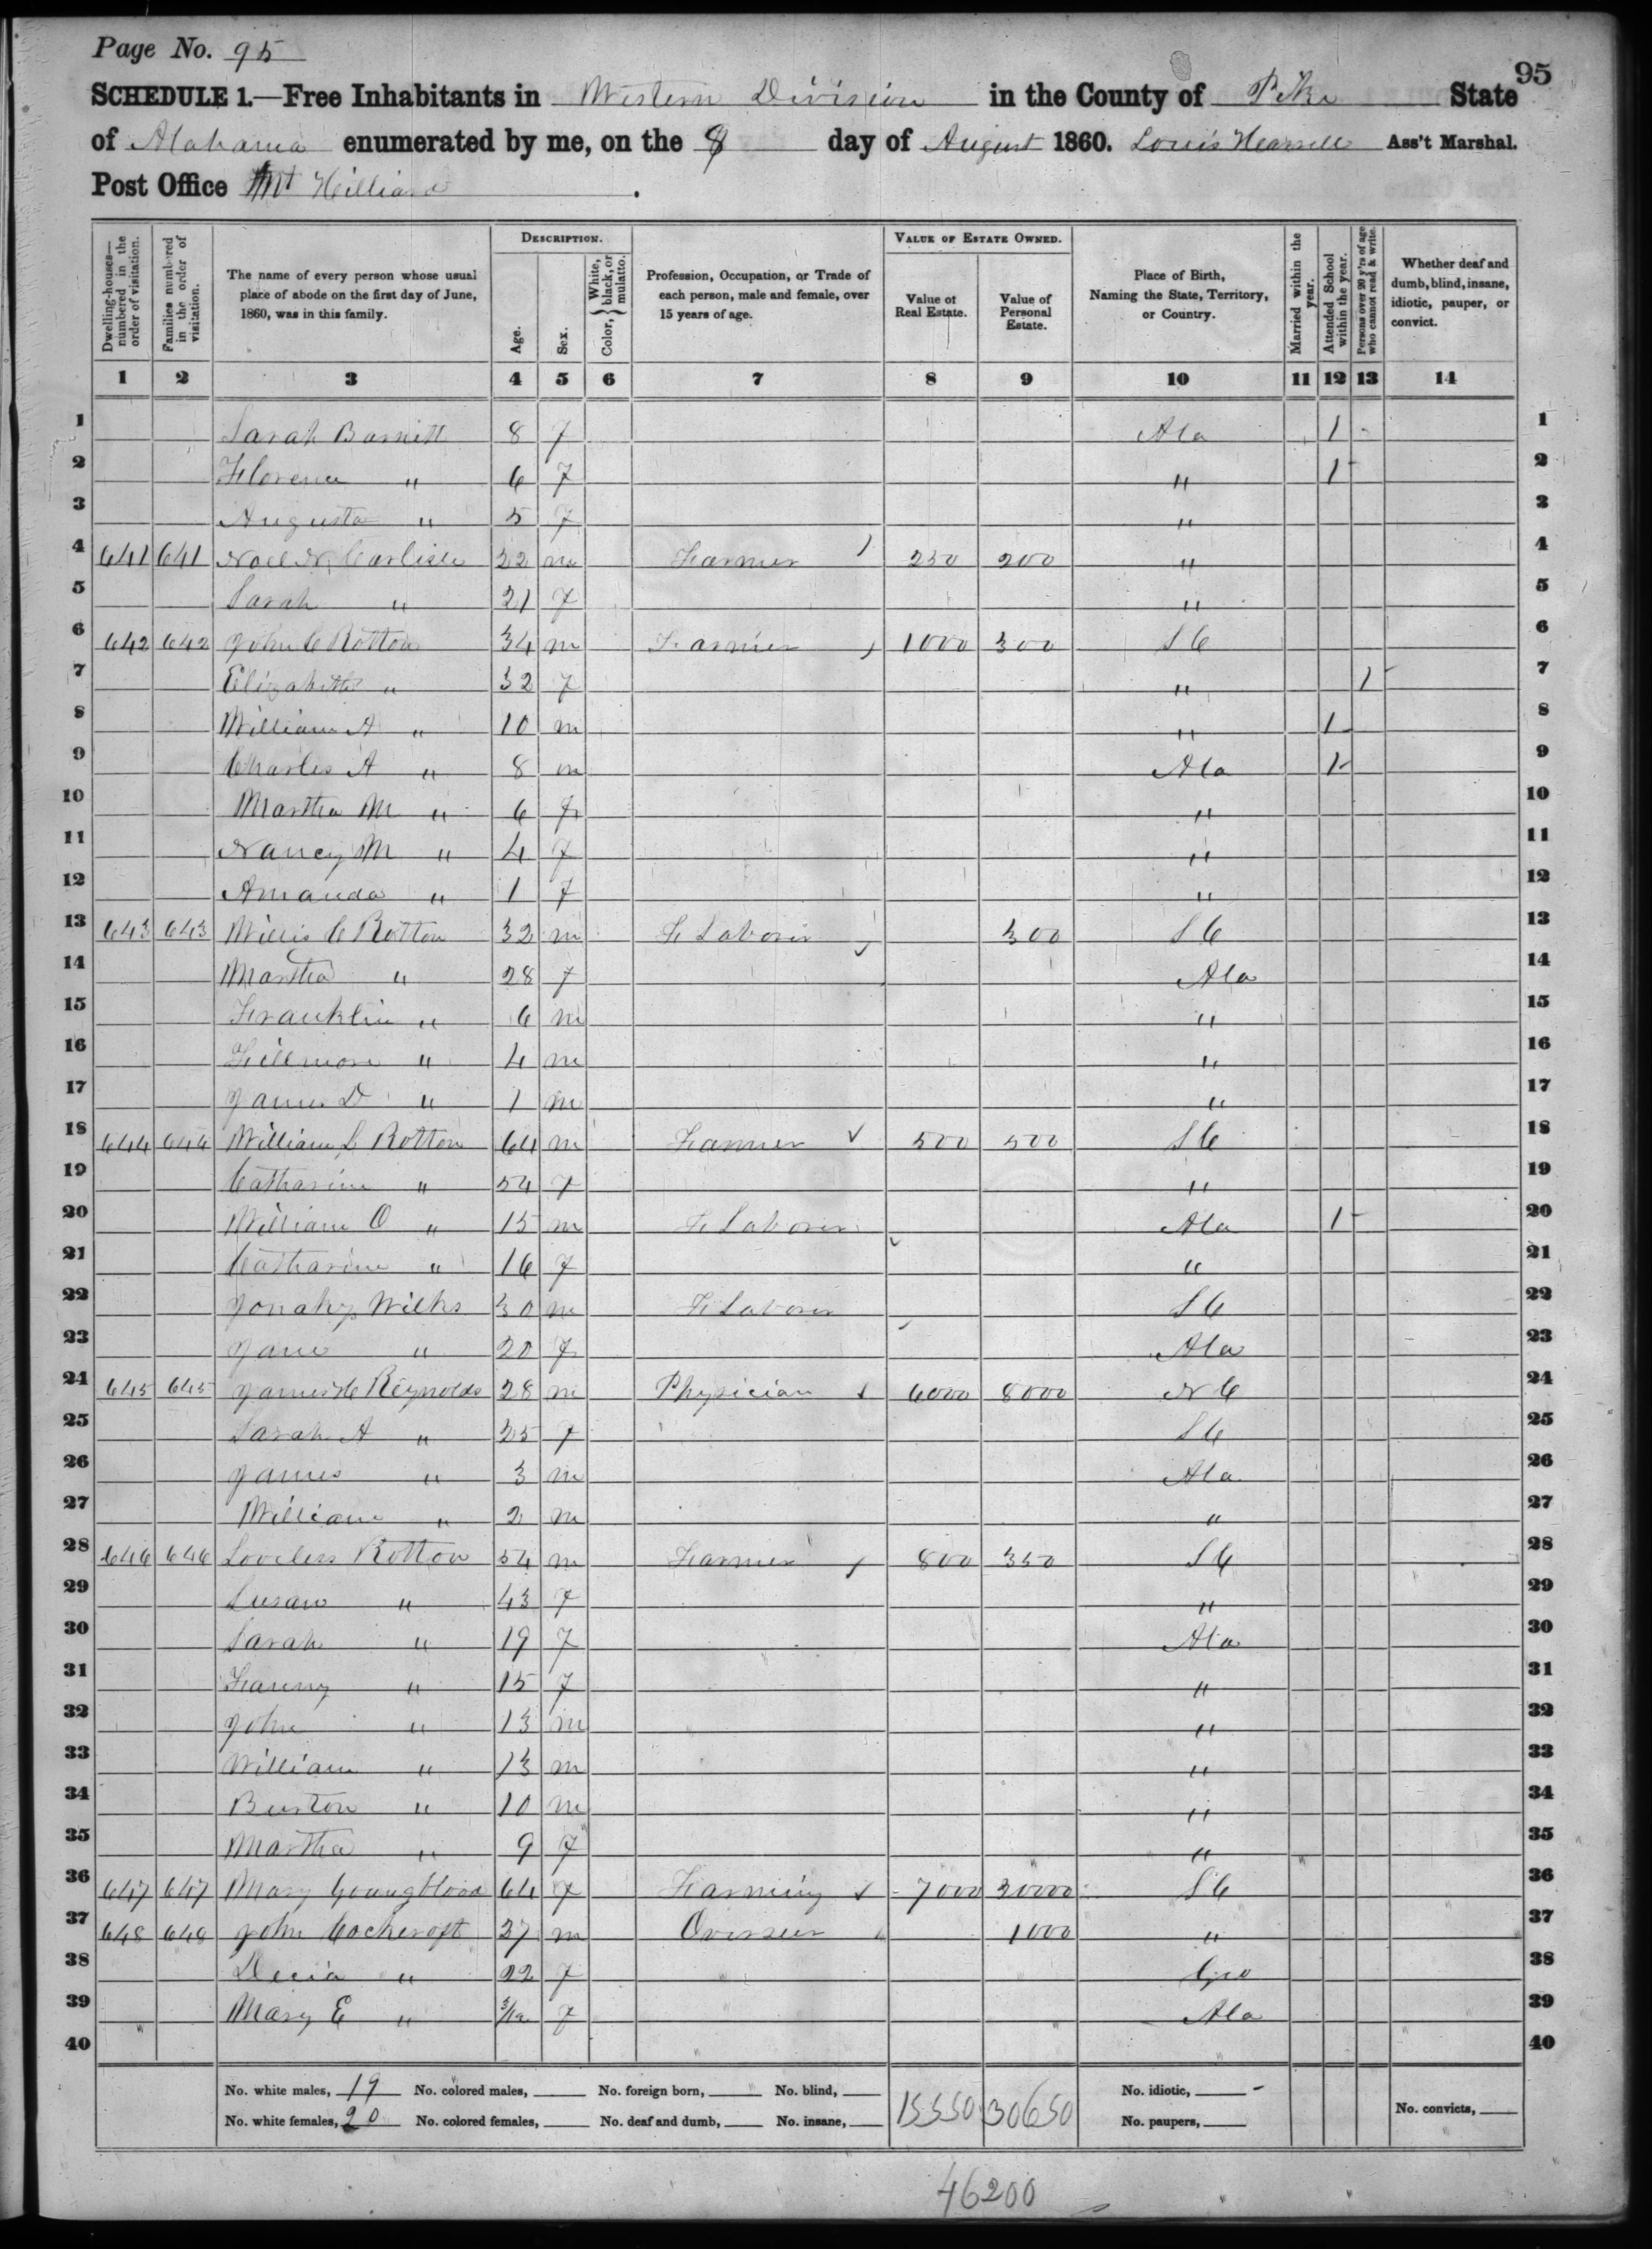 Page No. 95
95
SCHEDULE 1.—Free Inhabitants in Western Division in the County of Pike State
of Alabama enumerated by me, on the 8 day of August 1860. Louis Ass't Marshal.
Post Office Mt Hilliard .
Dwelling-houses—numbered in the order of visitation.
Families numbered in the order of visitation.
The name of every person whose usual place of abode on the first day of June, 1860, was in this family.
DESCRIPTION.
Age.
Sex.
Color, { White, black, or mulatto.
Profession, Occupation, or Trade of each person, male and female, over 15 years of age.
VALUE OF ESTATE OWNED.
Value of Real Estate.
Value of Personal Estate.
Place of Birth, Naming the State, Territory, or Country.
Married within the year.
Attended School within the year.
Persons over 20 y'rs of age who cannot read & write.
Whether deaf and dumb, blind, insane, idiotic, pauper, or convict.
1 2 3 4 5 6 7 8 9 10 11 12 13 14
1 Sarah Barnett 8 f Ala 1 1
2 Florence " 6 f " 1 2
3 Augusta " 5 f " 3
4 641 641 Noel N. Carlisle 22 m Farmer 250 200 " 4
5 Sarah " 21 f " 5
6 642 642 John C Rotton 34 m Farmer 1000 300 S C 6
7 Elizabeth " 32 f " 1 7
8 William A " 10 m " 1 8
9 Charles A " 8 m Ala 1 9
10 Martha M " 6 f " 10
11 Nancy M " 4 f " 11
12 Amanda " 1 f " 12
13 643 643 Willis C Rotton 32 m F Laborer 300 S C 13
14 Martha " 28 f Ala 14
15 Franklin " 6 m " 15
16 Fillmore " 4 m " 16
17 James D " 1 m " 17
18 644 644 William L Rotton 64 m Farmer 500 500 S C 18
19 Catharine " 54 f " 19
20 William O " 15 m F Laborer Ala 1 20
21 Catharine " 16 f " 21
22 Wilks 30 m F Laborer S C 22
23 Jane " 20 f Ala 23
24 645 645 James Reynolds 28 m Physician 6000 8000 N C 24
25 Sarah A " 25 f S C 25
26 James " 3 m Ala 26
27 William " 2 m " 27
28 646 646 Loveless Rotton 54 m Farmer 800 350 S C 28
29 Susan " 43 f " 29
30 Sarah " 19 f Ala 30
31 Fanny " 15 f " 31
32 John " 13 m " 32
33 William " 13 m " 33
34 Burton " 10 m " 34
35 Martha " 9 f " 35
36 647 647 Mary Youngblood 64 f Farming 7000 20000 S C 36
37 648 648 John Cockcroft 37 m Overseer 1000 " 37
38 " 22 f Geo 38
39 Mary E " 3/12 f Ala 39
40 40
No. white males, 19 No. colored males, No. foreign born, No. blind, 15550 30650 No. idiotic,
No. white females, 20 No. colored females, No. deaf and dumb, No. insane, No. paupers, No. convicts,
46200